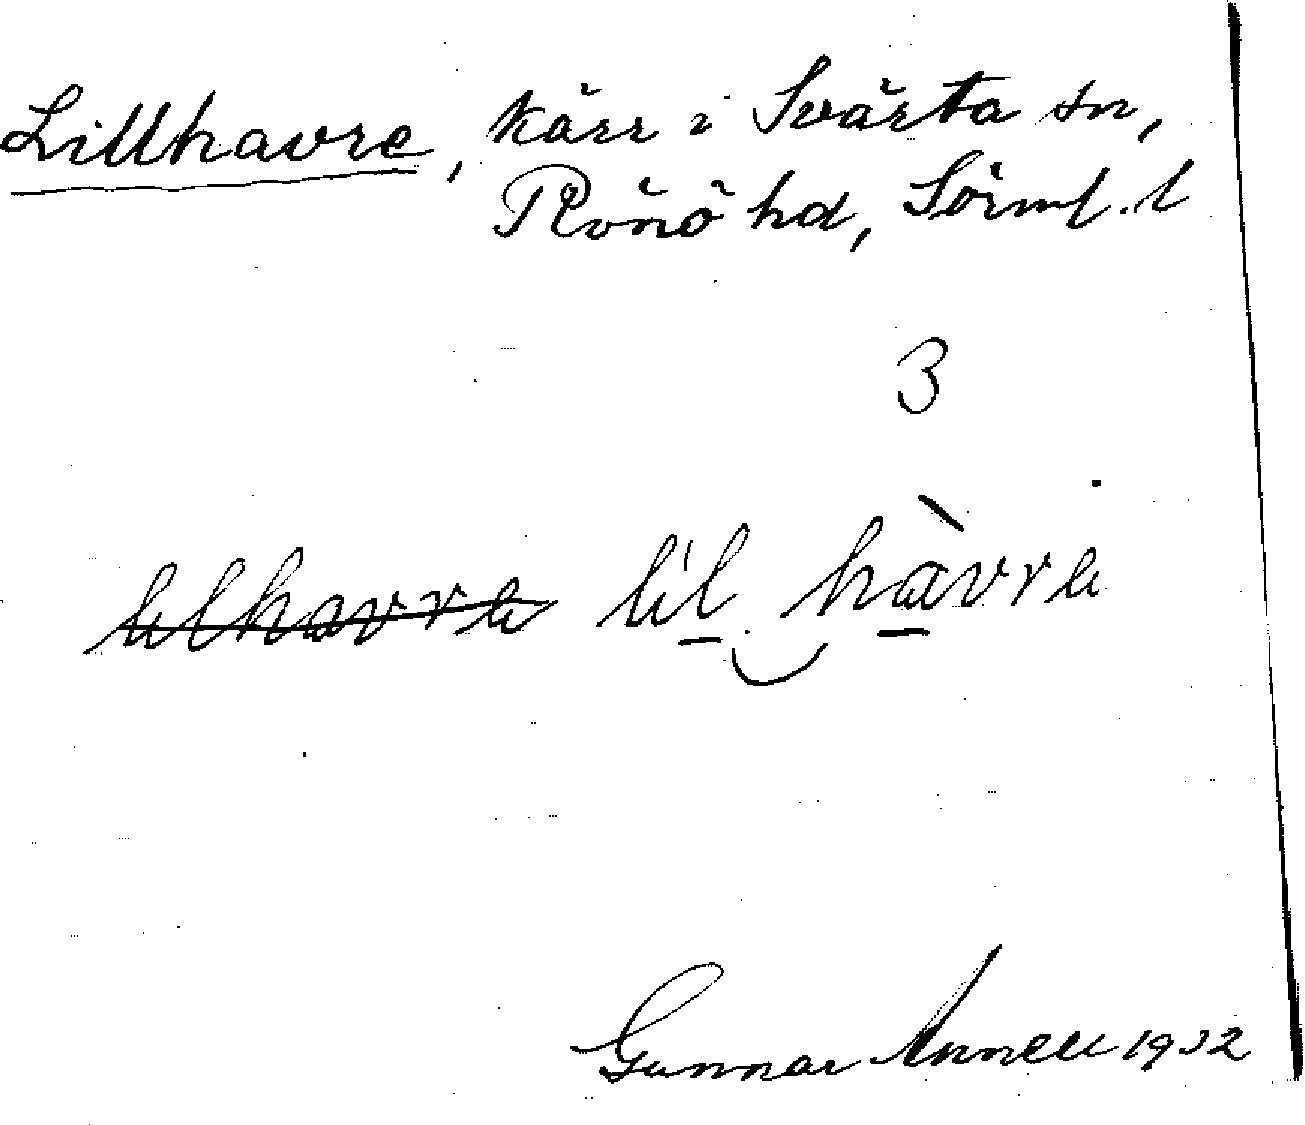 Lillhavre, kärr i Svärta sn,
Rönö hd, Sörml. l
3
lilhavre lil havre
Gunnar Annell 1932